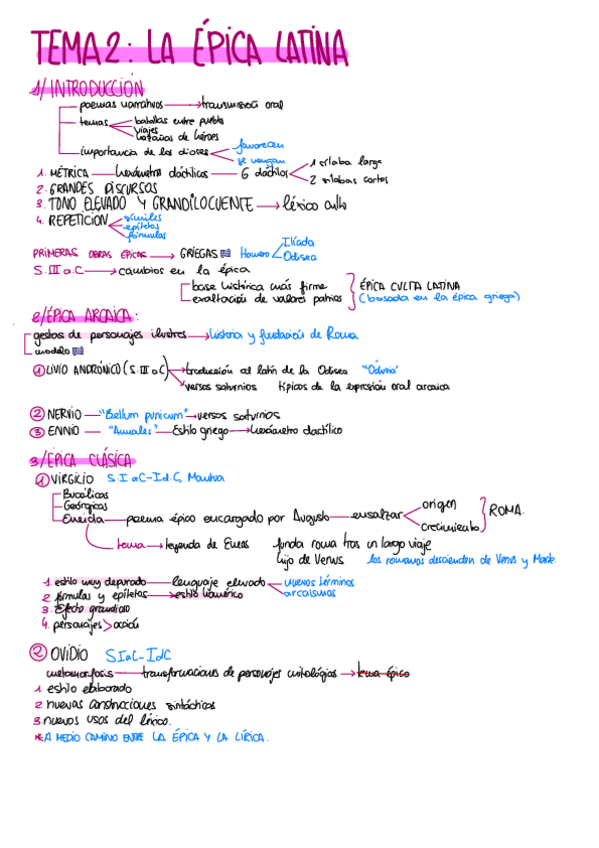 TEMA 2: LA ÉPICA LATINA
1/ INTRODUCCIÓN
poemas narrativos → transmisión oral
temas batallas entre pueblos
viajes
hazañas de héroes
importancia de los dioses favorecen
se vengan
1. MÉTRICA hexámetro dáctilicos 6 dáctilos 1 sílaba larga
2 sílabas cortas
2. GRANDES DISCURSOS
3. TONO ELEVADO Y GRANDILOCUENTE → léxico culto
4. REPETICIÓN símiles
epítetos
fórmulas
PRIMERAS OBRAS ÉPICAS → GRIEGAS Homero Ilíada
Odisea
S.III a.C → cambios en la épica
base histórica más firme
exaltación de valores patrios
ÉPICA CULTA LATINA
(basada en la épica griega)
2/ ÉPICA ARCAICA:
gestas de personajes ilustres → historia y fundación de Roma
modelo
1 LIVIO ANDRÓNICO (S.III a C) → traducción al latín de la Odisea
versos saturnios típicos de la expresión oral arcaica
2 NERVIO — "Bellum punicum" → versos saturnios
3 ENNIO — "Annales" — Estilo griego → hexámetro dactílico
3/ ÉPICA CLÁSICA
1 VIRGILIO S.I aC-I d.C, Mantua
Bucólicas
Geórgicas
Eneida — poema épico encargado por Augusto — ensalzar origen
crecimiento
ROMA.
tema → leyenda de Eneas funda roma tras un largo viaje
hijo de Venus los romanos descienden de Venus y Marte.
1. estilo muy depurado — lenguaje elevado nuevos términos
arcaismos
2. fórmulas y epítetos → estilo homérico
3. Efecto grandioso
4. personajes > acción
2 OVIDIO S I aC - I dC
metamorfosis — transformaciones de personajes mitológicos → tema épico
1. estilo elaborado
2 nuevas construcciones sintácticas
3. nuevos usos del léxico.
* A MEDIO CAMINO ENTRE LA ÉPICA Y LA LÍRICA.